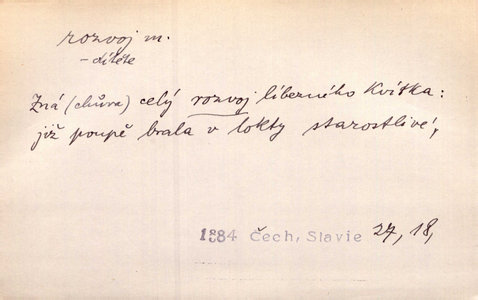 rozvoj m.
- dítěte
Zná (chůva) celý rozvoj líbezného Kvítka:
již poupě brala v lokty starostlivé,
1884 Čech, Slavie 27, 18,